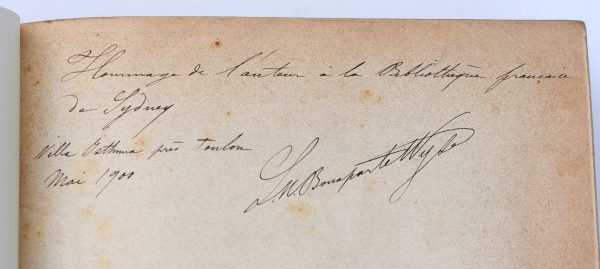 Hommage de l'auteur à la Bibliothèque française
de Sydney
Villa Isthmia près Toulon
Mai 1900
L.N. Bonaparte Wyse